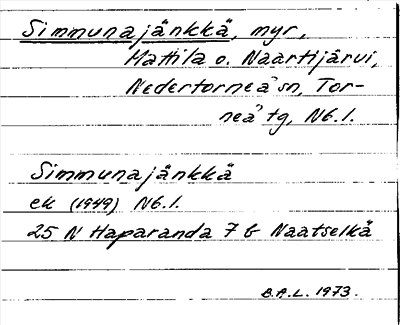 Simmunajänkkä, myr,
Mattila o. Naartijärvi,
Nedertorneå sn, Tor-
neå tg, Nb. l.
Simmunajänkkä
ek (1949) Nb. l.
25 N Haparanda 7 b Naatselkä
B.A.L. 1973.